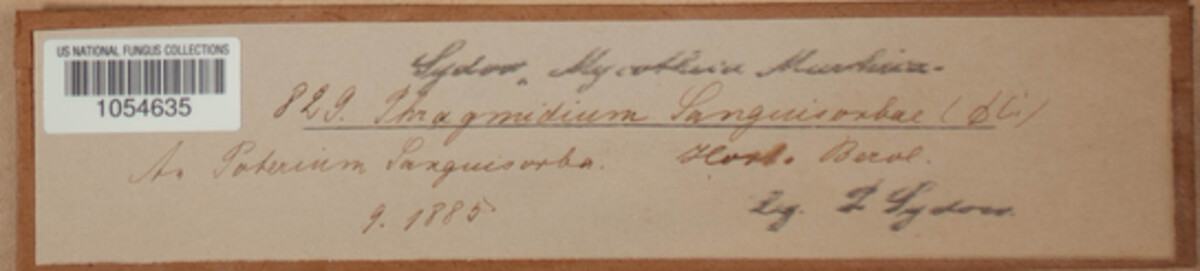 US NATIONAL FUNGUS COLLECTIONS
1054635
Sydow, Mycotheca Marchica.
829. Phragmidium Sanguisorbae (DC.)
An Poterium Sanguisorba. Hort. Berol.
9. 1885
Lg. P. Sydow.